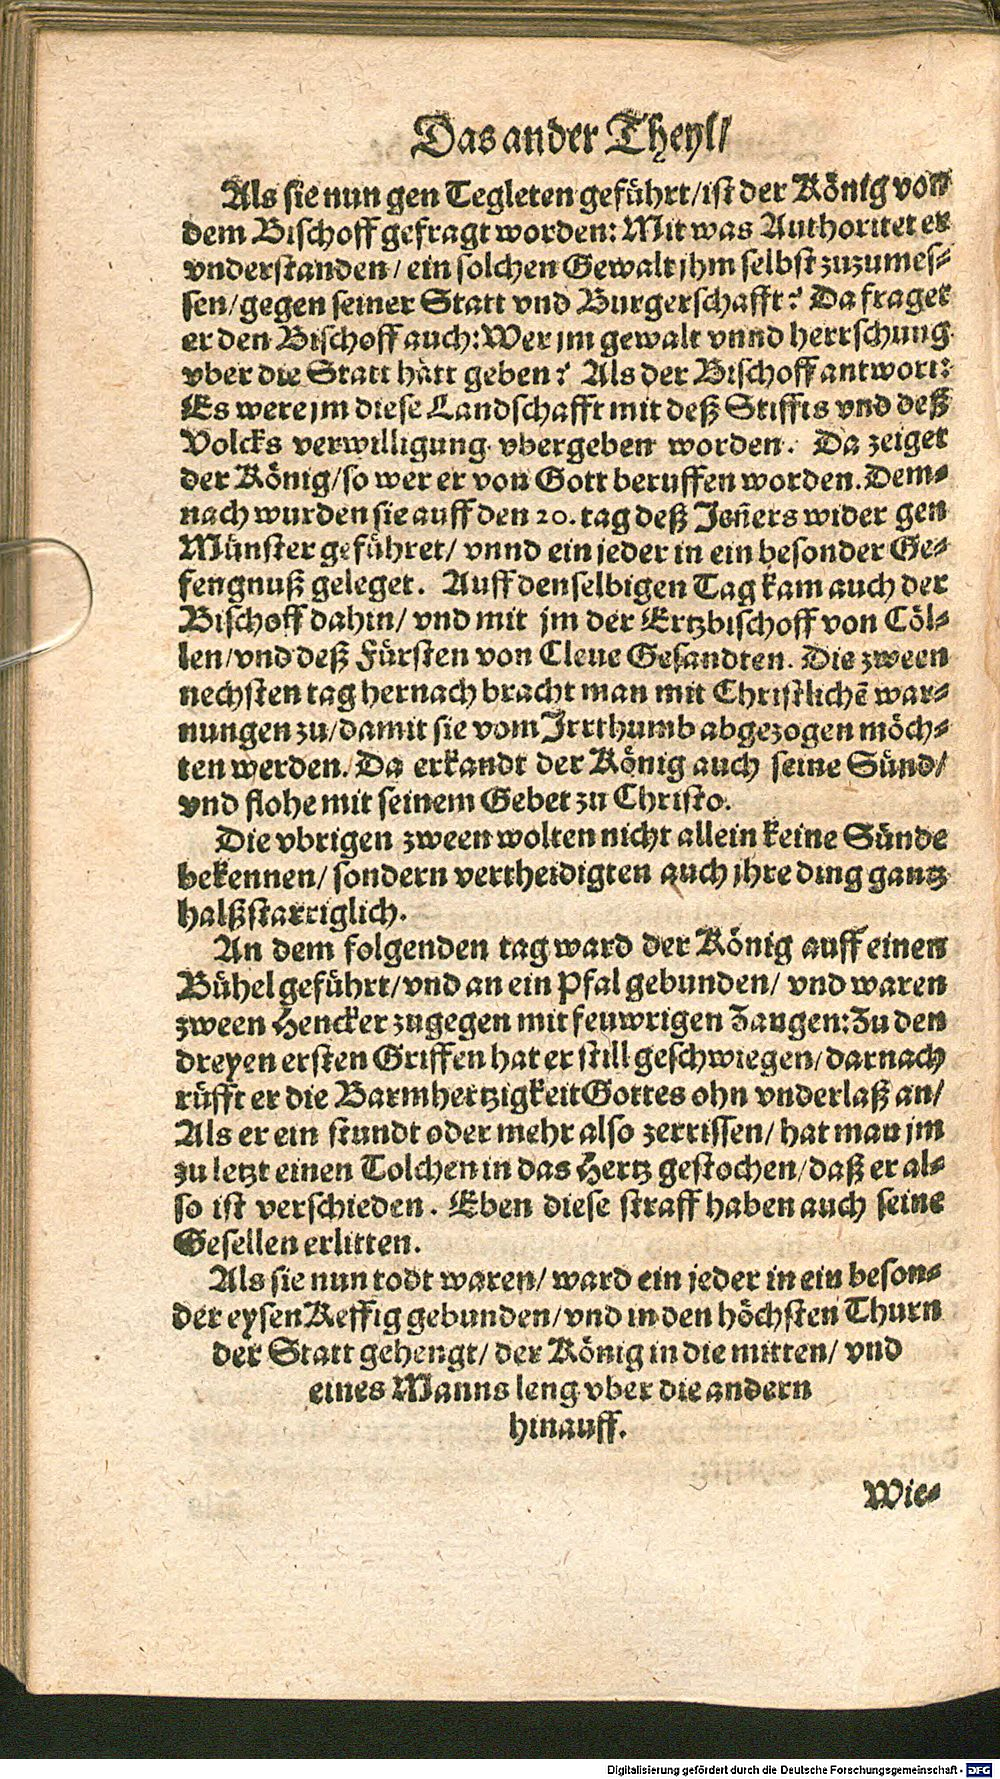 Das ander Theyl/
Als sie nun gen Tegleten geführt/ist der König von
dem Bischoff gefragt worden: Mit was Authoritet er
vnderstanden/ ein solchen Gewalt jhm selbst zuzumes-
sen/gegen seiner Statt vnd Burgerschafft? Da fraget
er den Bischoff auch: Wer jm gewalt vnnd herrschung
vber die Statt hätt geben? Als der Bischoff antwort:
Es were jm diese Landschafft mit deß Stiffts vnd deß
Volcks verwilligung vbergeben worden. Da zeiget
der König/so wer er von Gott beruffen worden. Dem-
nach wurden sie auff den 20. tag deß Jeñers wider gen
Münster geführet/ vnnd ein jeder in ein besonder Ge-
fengnuß geleget. Auff denselbigen Tag kam auch der
Bischoff dahin/ vnd mit jm der Ertzbischoff von Cöl-
len/vnd deß Fürsten von Cleue Gesandten. Die zween
nechsten tag hernach bracht man mit Christlichẽ war-
nungen zu/damit sie vom Jrrthumb abgezogen möch-
ten werden. Da erkandt der König auch seine Sünd/
vnd flohe mit seinem Gebet zu Christo.
Die vbrigen zween wolten nicht allein keine Sünde
bekennen/ sondern vertheidigten auch jhre ding gantz
halßstarriglich.
An dem folgenden tag ward der König auff einen
Bühel geführt/vnd an ein Pfal gebunden/ vnd waren
zween Hencker zugegen mit feuwrigen Zangen: Zu den
dreyen ersten Griffen hat er still geschwiegen/darnach
rüfft er die Barmhertzigkeit Gottes ohn vnderlaß an/
Als er ein stundt oder mehr also zerrissen/ hat man jm
zu letzt einen Tolchen in das Hertz gestochen/daß er al-
so ist verschieden. Eben diese straff haben auch seine
Gesellen erlitten.
Als sie nun todt waren/ ward ein jeder in ein beson-
der eysen Keffig gebunden/vnd in den höchsten Thurn
der Statt gehengt/ der König in die mitten/ vnd
eines Manns leng vber die andern
hinauff.
Wie-
Digitalisierung gefördert durch die Deutsche Forschungsgemeinschaft - DFG